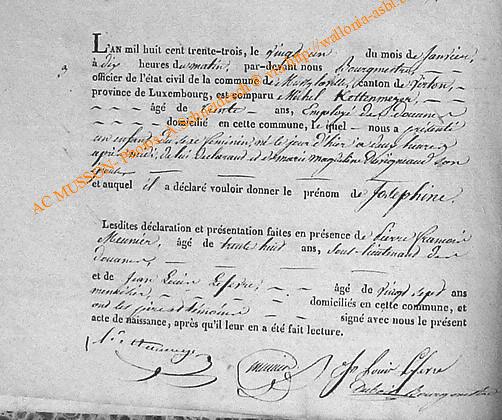 L'AN mil huit cent trente-trois, le vingt un du mois de Janvier,
à dix heures du matin, par-devant nous Bourgmestre,
officier de l'état civil de la commune de canton de Virton,
province de Luxembourg, est comparu Michel Kettenmeyer
âgé de trente ans, Employé des Douanes
domicilié en cette commune, lequel nous a présenté
un enfant du sexe féminin né le jour d'hier à heures
après midi, de lui déclarant et de Marie son
épouse
et auquel il a déclaré vouloir donner le prénom de Josephine.
Lesdites déclaration et présentation faites en présence de Pierre François
Meunier, âgé de trente huit ans, Sous-lieutenant des
douanes,
et de Jean Louis Lefevre, âgé de vingt sept ans
domiciliés en cette commune, et
ont les père et témoins signé avec nous le présent
acte de naissance, après qu'il leur en a été fait lecture.
meunier Jn Louis Lefevre
Bourgmestre
AC MUSSON- Photos A. Schneidesch © via http://wallonia-asbl.